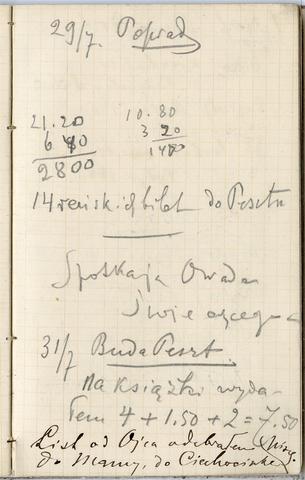 29/7. Poprad
21.20 10.80
6 80 3 20
2800 1400
14 reńsk. ich bilet do Pesztu
Spotkaja Owada
Święcącego
31/7 BudaPeszt.
na książki wyda-
łem 4 + 1.50 + 2 = 7.50
List od Ojca odebrałem
do Mamy, do Ciechocinka